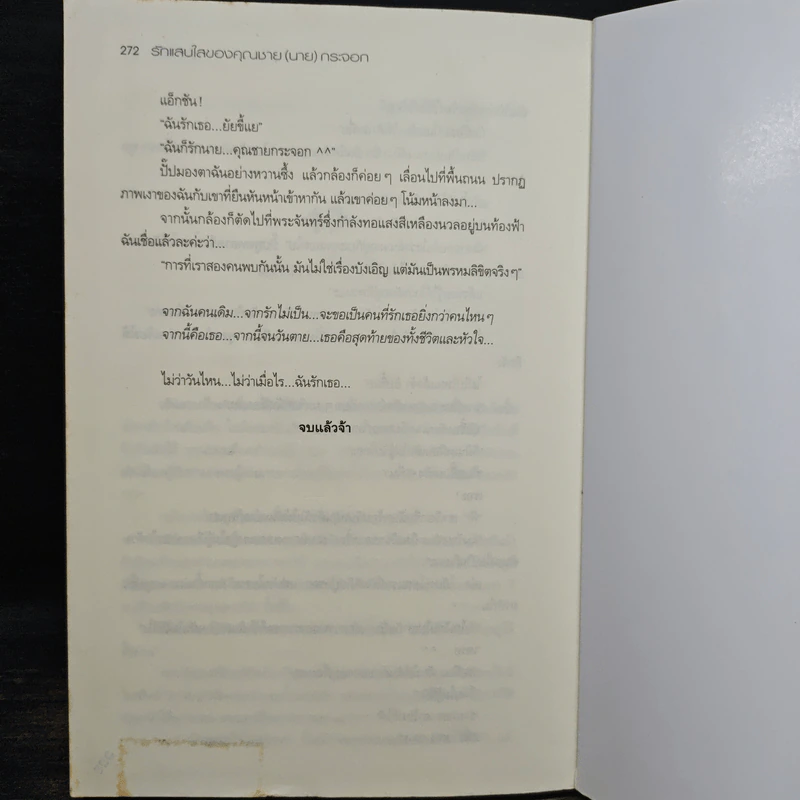 272 รักแสนใสของคุณชาย (นาย) กระจอก
แอ็กชัน!
“ฉันรักเธอ...ยัยขี้แย”
“ฉันก็รักนาย...คุณชายกระจอก ^^”
ปั๊ปมองตาฉันอย่างหวานซึ้ง แล้วกล้องก็ค่อยๆ เลื่อนไปที่พื้นถนน ปรากฏ
ภาพเงาของฉันกับเขาที่ยืนหันหน้าเข้าหากัน แล้วเขาค่อยๆ โน้มหน้าลงมา...
จากนั้นกล้องก็ตัดไปที่พระจันทร์ซึ่งกำลังทอแสงสีเหลืองนวลอยู่บนท้องฟ้า
ฉันเชื่อแล้วละค่ะว่า...
“การที่เราสองคนพบกันนั้น มันไม่ใช่เรื่องบังเอิญ แต่มันเป็นพรหมลิขิตจริงๆ”
จากฉันคนเดิม...จากรักไม่เป็น...จะขอเป็นคนที่รักเธอยิ่งกว่าคนไหนๆ
จากนี้คือเธอ...จากนี้จนวันตาย...เธอคือสุดท้ายของทั้งชีวิตและหัวใจ...
ไม่ว่าวันไหน...ไม่ว่าเมื่อไร...ฉันรักเธอ...
จบแล้วจ้า